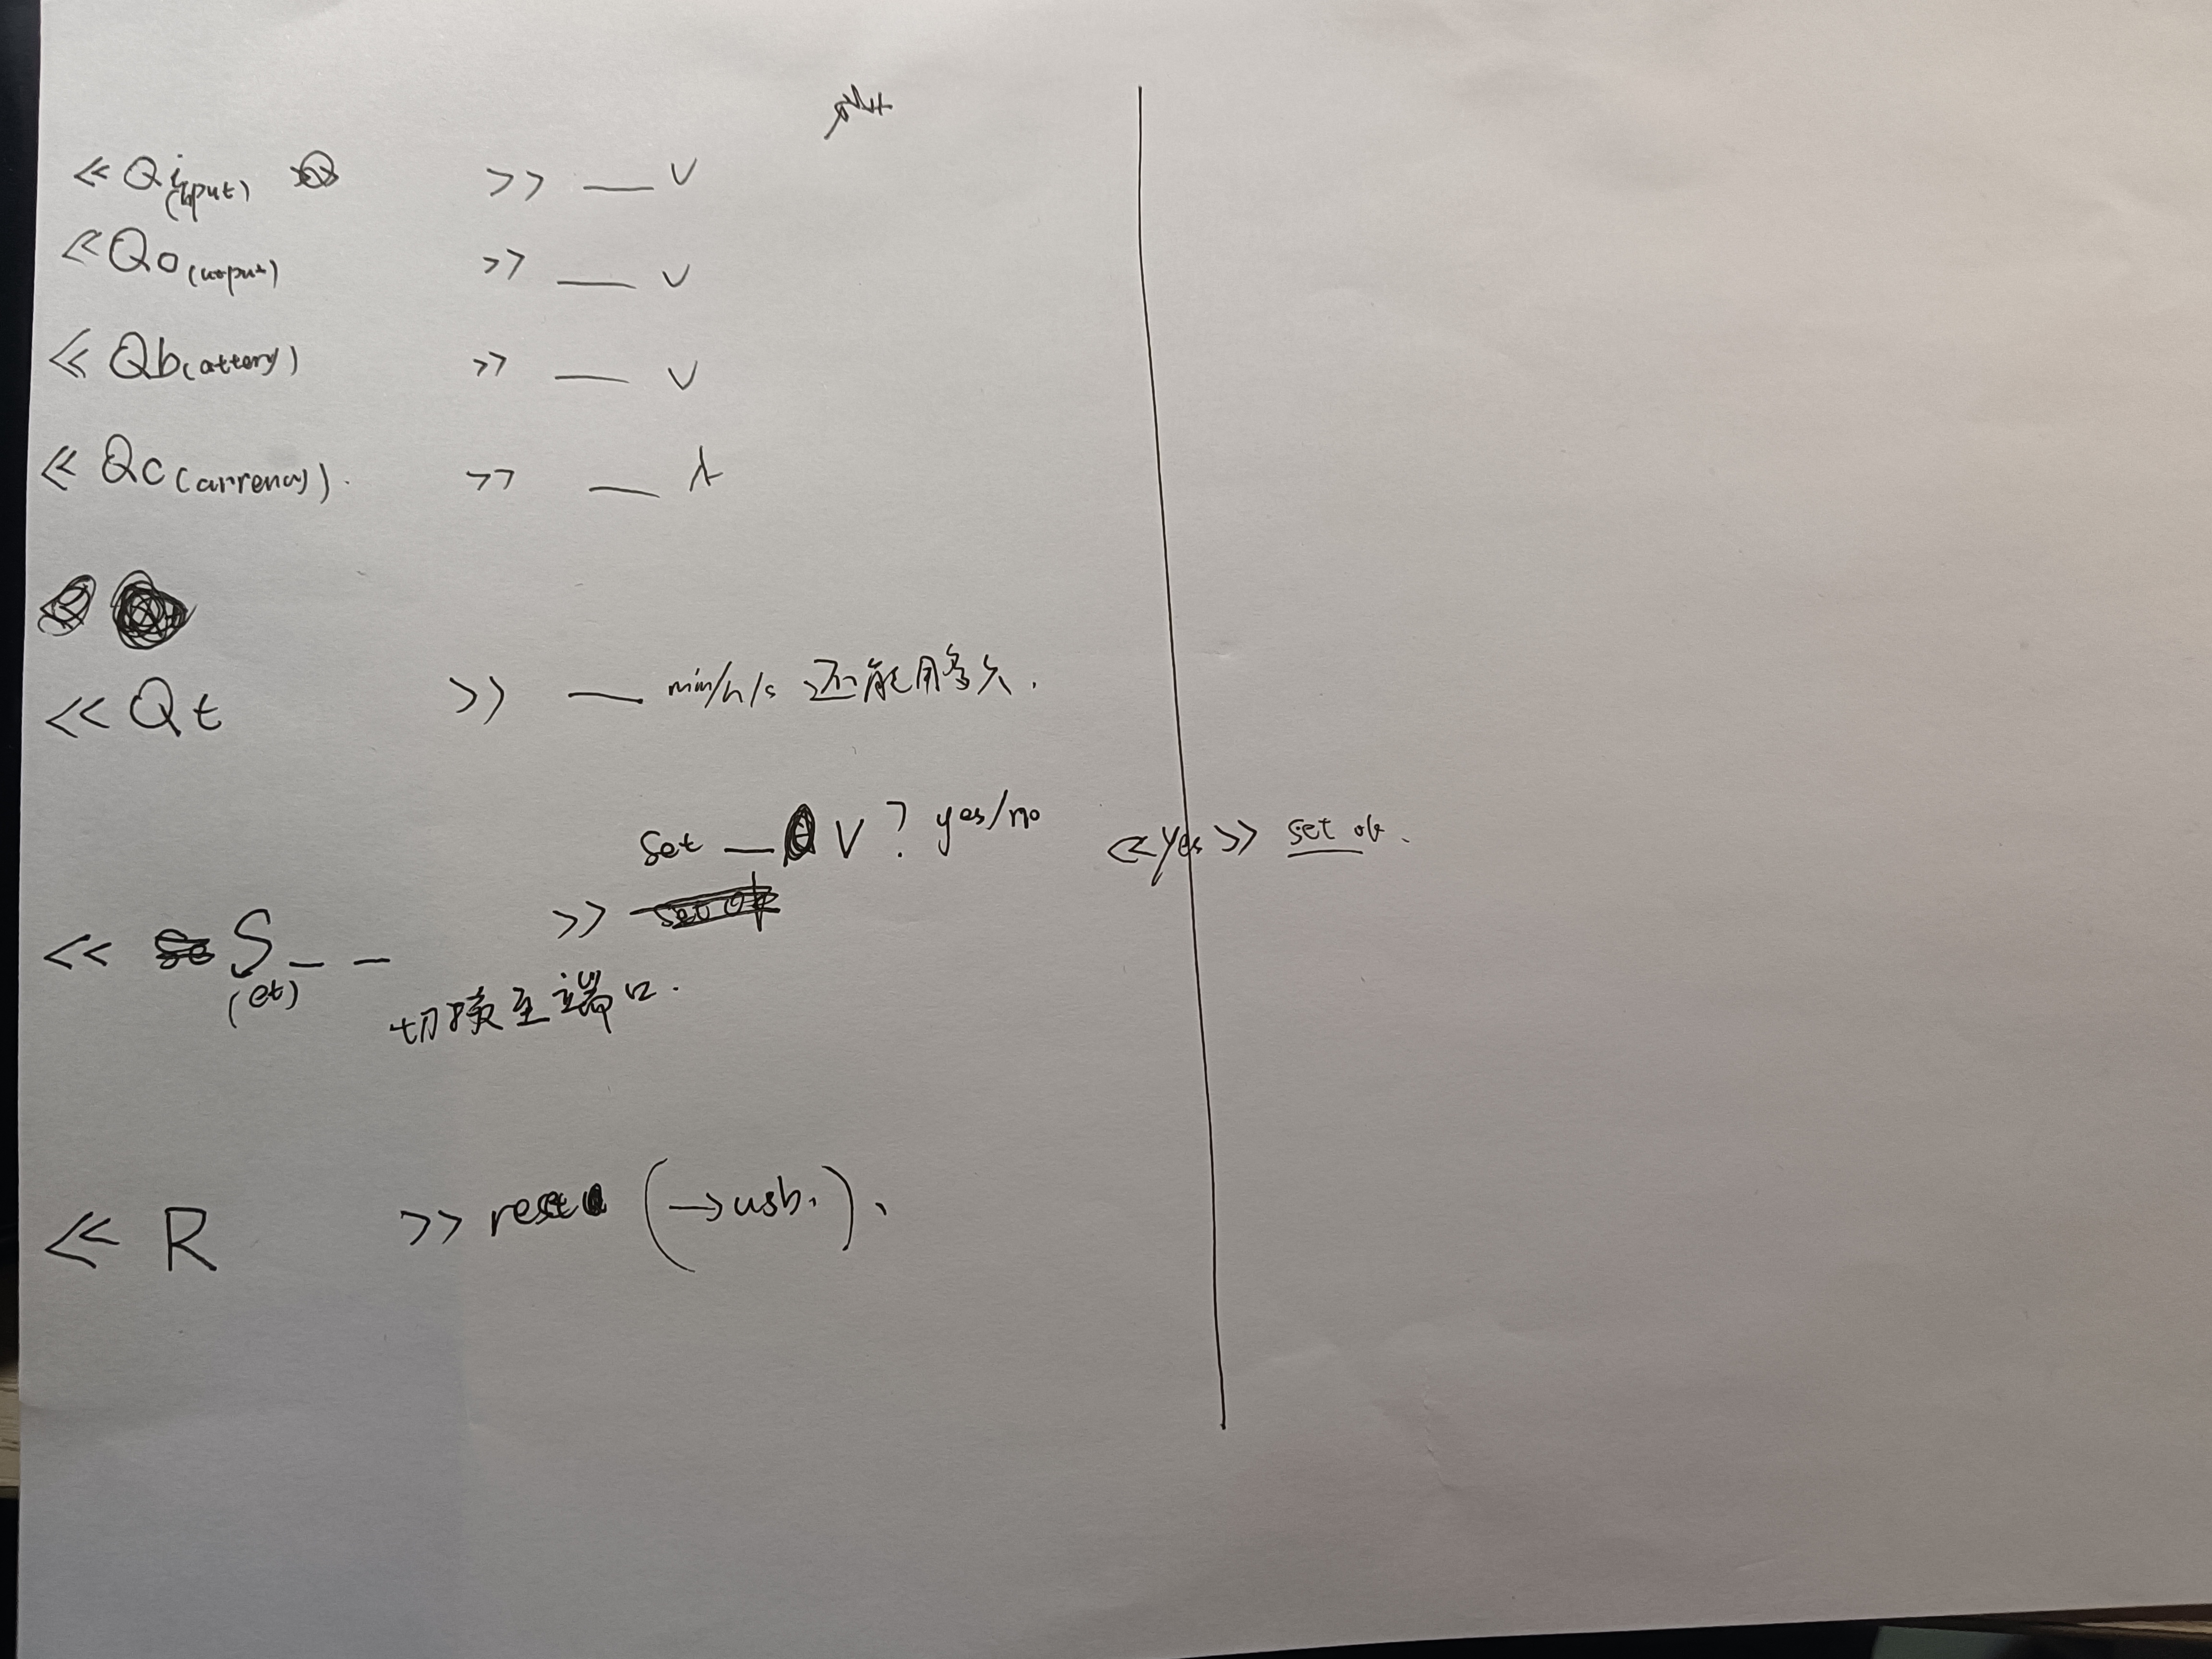 << Qi(nput) >> __ V
<< Qo(utput) >> __ V
<< Qb(attery) >> __ V
<< Qc(urrency). >> __ A
<< Qt >> __ min/h/s 还能用多久.
set __ V? yes/no << yes >> set ok.
<< S(et) _ _ >>
切换至端口.
<< R >> reset (→usb.).